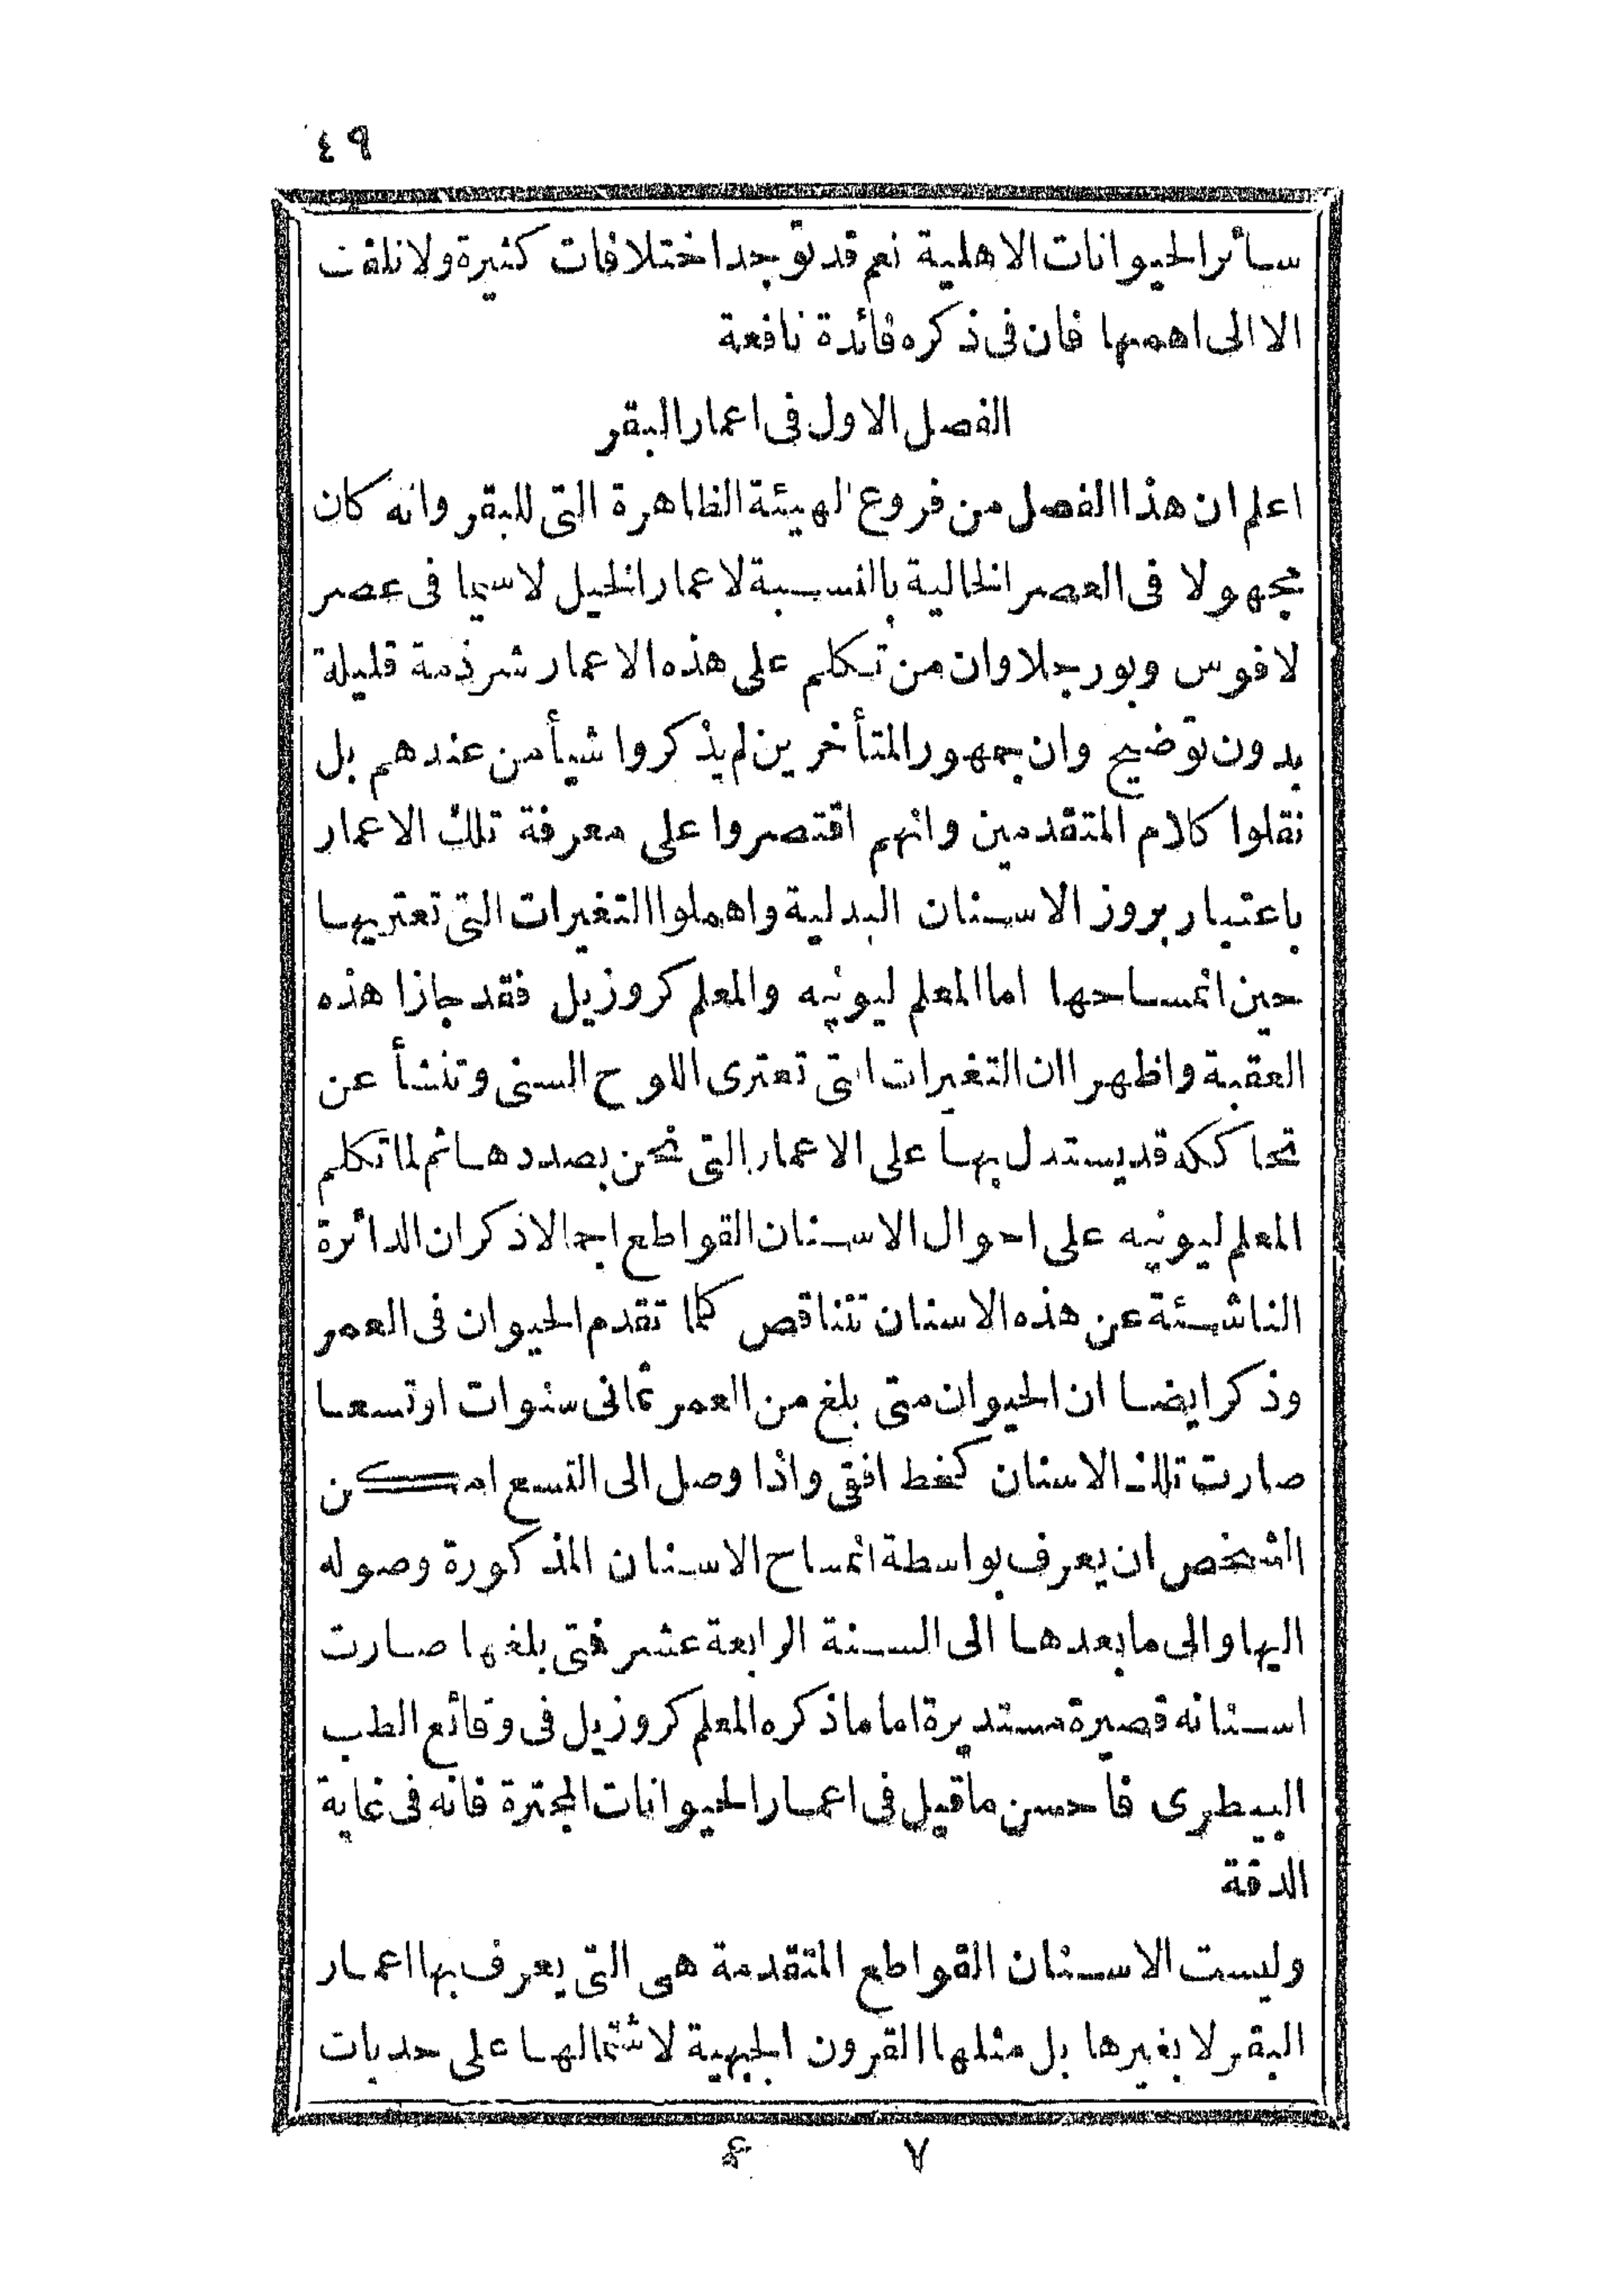 ٤٩
سائر الحيوانات الاهلية نعم قد توجد اختلافات كثيرة ولا نلتفت
الا الى اهمها فان فى ذكره فائدة نافعة
الفصل الاول فى اعمار البقر
اعلم ان هذا الفصل من فروع الهيئة الظاهرة التى للبقر وانه كان
مجهولا فى العصر الخالية بالنسبة لاعمار الخيل لاسيما فى عصر
لافوس وبورجلا وان من تكلم على هذه الاعمار شرذمة قليلة
بدون توضيح وان جمهور المتأخرين لم يذكروا شيأ من عندهم بل
نقلوا كلام المتقدمين وانهم اقتصروا على معرفة تلك الاعمار
باعتبار بروز الاسنان البدلية واهملوا التغيرات التى تعتريها
حين انمساحها اما المعلم ليونيه والمعلم كروزيل فقد جازا هذه
العقبة واظهرا ان التغيرات التى تعترى اللوح السنى وتنشأ عن
تحاككه قد يستدل بها على الاعمار التى نحن بصددها ثم لما تكلم
المعلم ليونيه على احوال الاسنان القواطع اجمالا ذكر ان الدائرة
الناشئة عن هذه الاسنان تتناقص كلما تقدم الحيوان فى العمر
وذكر ايضا ان الحيوان متى بلغ من العمر ثمانى سنوات او تسعا
صارت تلك الاسنان كخط افقى واذا وصل الى التسع امكن
الشخص ان يعرف بواسطة انمساح الاسنان المذكورة وصوله
اليها والى ما بعدها الى السنة الرابعة عشر فمتى بلغها صارت
اسنانه قصيرة مستديرة اما ما ذكره المعلم كروزيل فى وقائع الطب
البيطرى فاحسن ما قيل فى اعمار الحيوانات المجترة فانه فى غاية
الدقة
وليست الاسنان القواطع المتقدمة هى التى يعرف بها اعمار
البقر لا بغيرها بل مثلها القرون الجبهية لاشتمالها على حدبات
٧